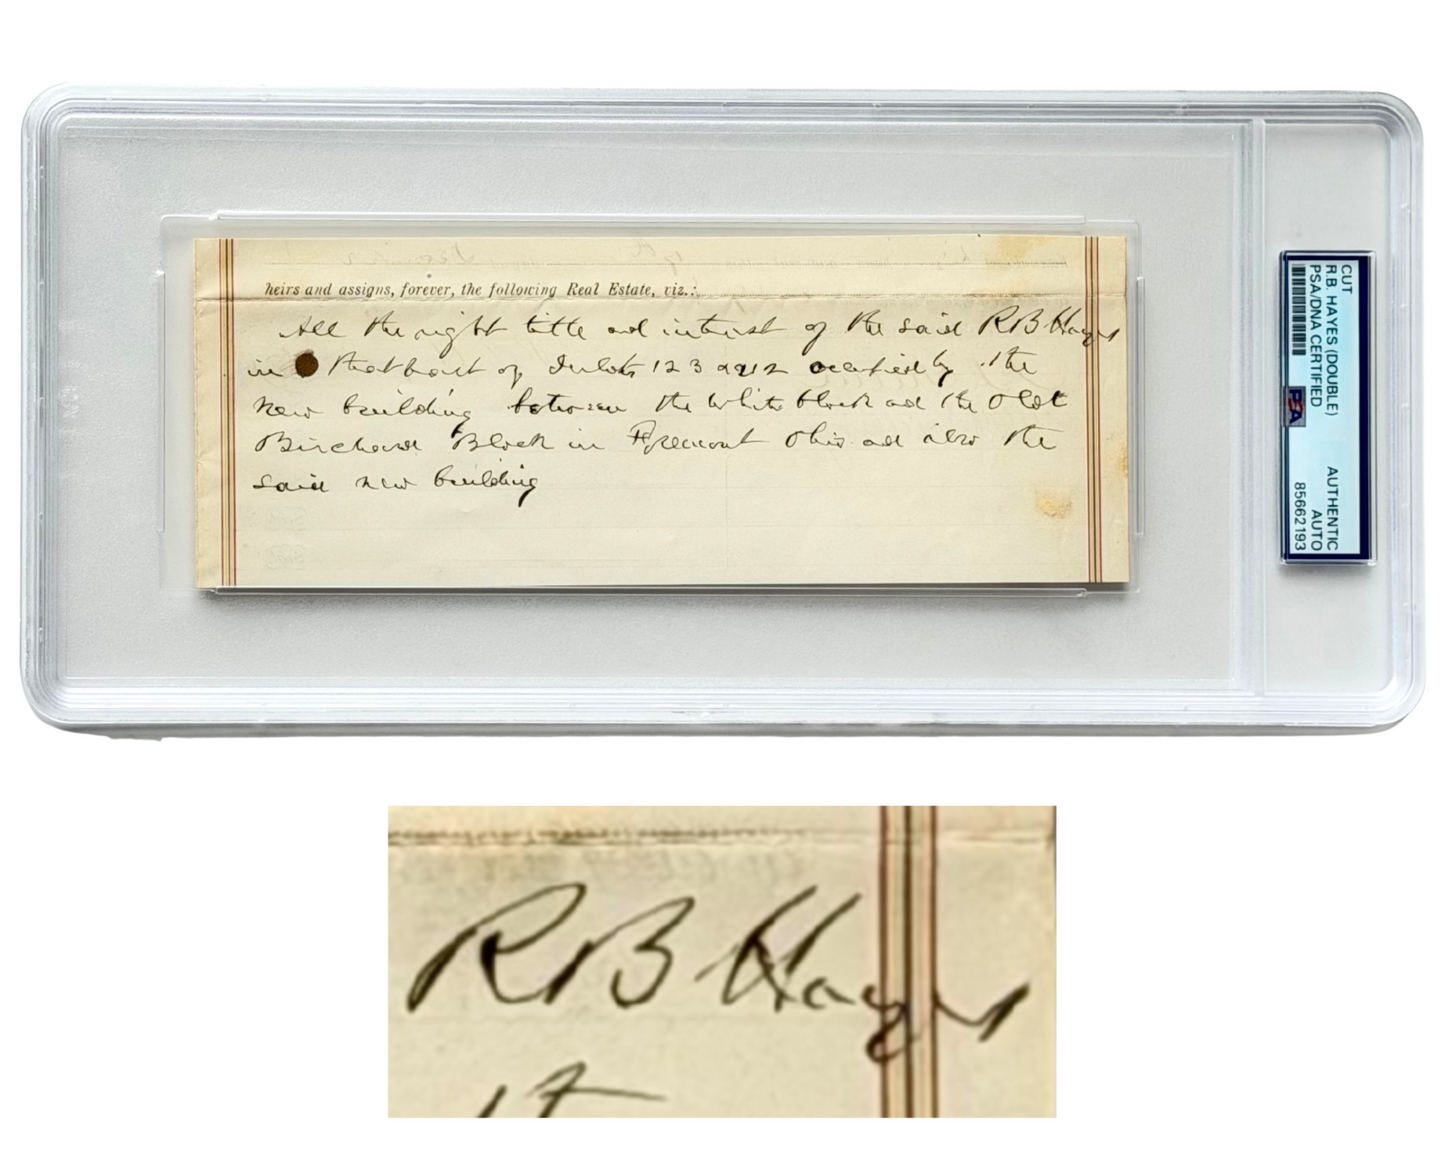 heirs and assigns, forever, the following Real Estate, viz.:
All the right title and interest of the said R B Hayes
in that part of Inlots 1 2 3 occupied by the
New building between the White block and the Old
Birchard Block in Fremont Ohio and also the
said new building
CUT
R.B. HAYES (DOUBLE)
PSA/DNA CERTIFIED
PSA
AUTHENTIC
AUTO
85662193
R B Hayes